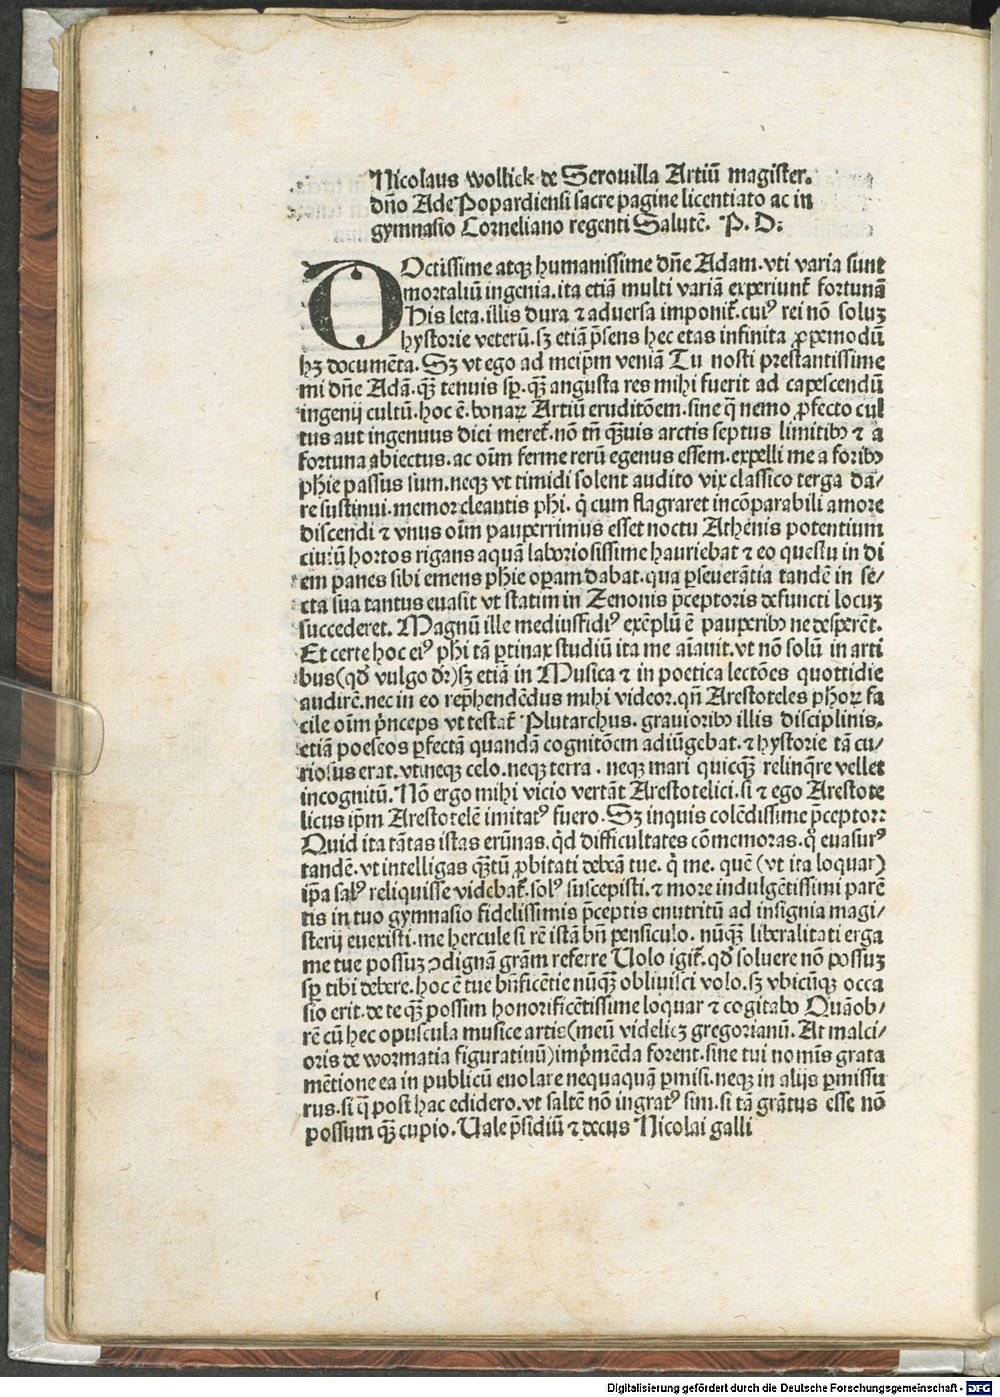 Nicolaus wollick de Serouilla Artiū magister.
dn̄o Ade Popardiensi sacre pagine licentiato ac in
gymnasio Corneliano regenti Salutē. P. D:
DOctissime atqꝫ humanissime dn̄e Adam. vti varia sunt
mortaliū ingenia. ita etiā multi variā experiunt᷑ fortunā
His leta. illis dura ⁊ aduersa imponit᷑. cuiꝰ rei nō soluꝫ
hystorie veterū. sꝫ etiā p̄sens hec etas infinita ꝓpemodū
hꝫ documēta. Sꝫ vt ego ad meip̄m veniā Tu nosti prestantissime
mi dn̄e Adā. qꝫ̄ tenuis sꝑ. qꝫ̄ angusta res mihi fuerit ad capescendū
ingenij cultū. hoc ē. bonaꝝ Artiū eruditōem. sine q̄ nemo ꝓfecto cul
tus aut ingenuus dici meret᷑. nō tn̄ qꝫ̄uis arctis septus limitibꝰ ⁊ a
fortuna abiectus. ac oīm ferme rerū egenus essem. expelli me a foribꝰ
phie passus sum. neqꝫ vt timidi solent audito vix classico terga da/
re sustinui. memor cleantis phi. q̇ cum flagraret incōparabili amore
discendi ⁊ vnus oīm pauperrimus esset noctu Athenis potentium
ciuiū hortos rigans aquā laboriosissime hauriebat ⁊ eo questu in di
em panes sibi emens phie opam dabat. qua ꝑseuerātia tandē in se/
cta sua tantus euasit vt statim in Zenonis p̄ceptoris defuncti locuꝫ
succederet. Magnū ille mediusfidiꝰ exēplū ē pauperibꝰ ne desperēt.
Et certe hoc eiꝰ phi tā ꝑtinax studiū ita me aīauit. vt nō solū in arti
bus (qd̓ vulgo dr̄) sꝫ etiā in Musica ⁊ in poetica lectōes quottidie
audirē. nec in eo rep̄hendēdus mihi videor. qn̄ Arestoteles phoꝝ fa
cile oīm p̓nceps vt testat᷑ Plutarchus. grauioribꝰ illis disciplinis.
etiā poeseos ꝑfectā quandā cognitōem adiūgebat. ⁊ hystorie tā cu/
riosus erat. vt neqꝫ celo. neqꝫ terra. neqꝫ mari quicqꝫ̄ relinq̄re vellet
incognitū. Nō ergo mihi vicio vertāt Arestotelici. si ⁊ ego Arestote
licus ip̄m Arestotelē imitatꝰ fuero. Sꝫ inquis colēdissime p̄ceptor:
Quid ita tātas istas erūnas. q̇d difficultates cōmemoras. q̊ euasurꝰ
tandē. vt intelligas qꝫ̄tū ꝓbitati debeā tue. q̇ me. quē (vt ita loquar)
ip̄a salꝰ reliquisse videbat᷑. solꝰ suscepisti. ⁊ more indulgētissimi parē
tis in tuo gymnasio fidelissimis p̄ceptis enutritū ad insignia magi/
sterij euexisti. me hercule si rē istā bn̄ pensiculo. nūqꝫ̄ liberalitati erga
me tue possuꝫ ꝯdignā grām referre Uolo igit᷑. qd̓ soluere nō possuꝫ
sꝑ tibi debere. hoc ē tue bn̄ficētie nūqꝫ̄ obliuisci volo. sꝫ vbicūqꝫ occa
sio erit. de te qꝫ̄ possim honorificētissime loquar ⁊ cogitabo Quāob/
rē cū hec opuscula musice artis (meū videlicꝫ gregorianū. At malci/
oris de wormatia figuratiuū) imp̓mēda forent. sine tui nomīs grata
mētione ea in publicū euolare nequaquā ꝑmisi. neqꝫ in alijs ꝑmissu
rus. si q̄ post hac edidero. vt saltē nō ingratꝰ sim. si tā grātus esse nō
possum qꝫ̄ cupio. Uale p̄sidiū ⁊ decus Nicolai galli
Digitalisierung gefördert durch die Deutsche Forschungsgemeinschaft - DFG